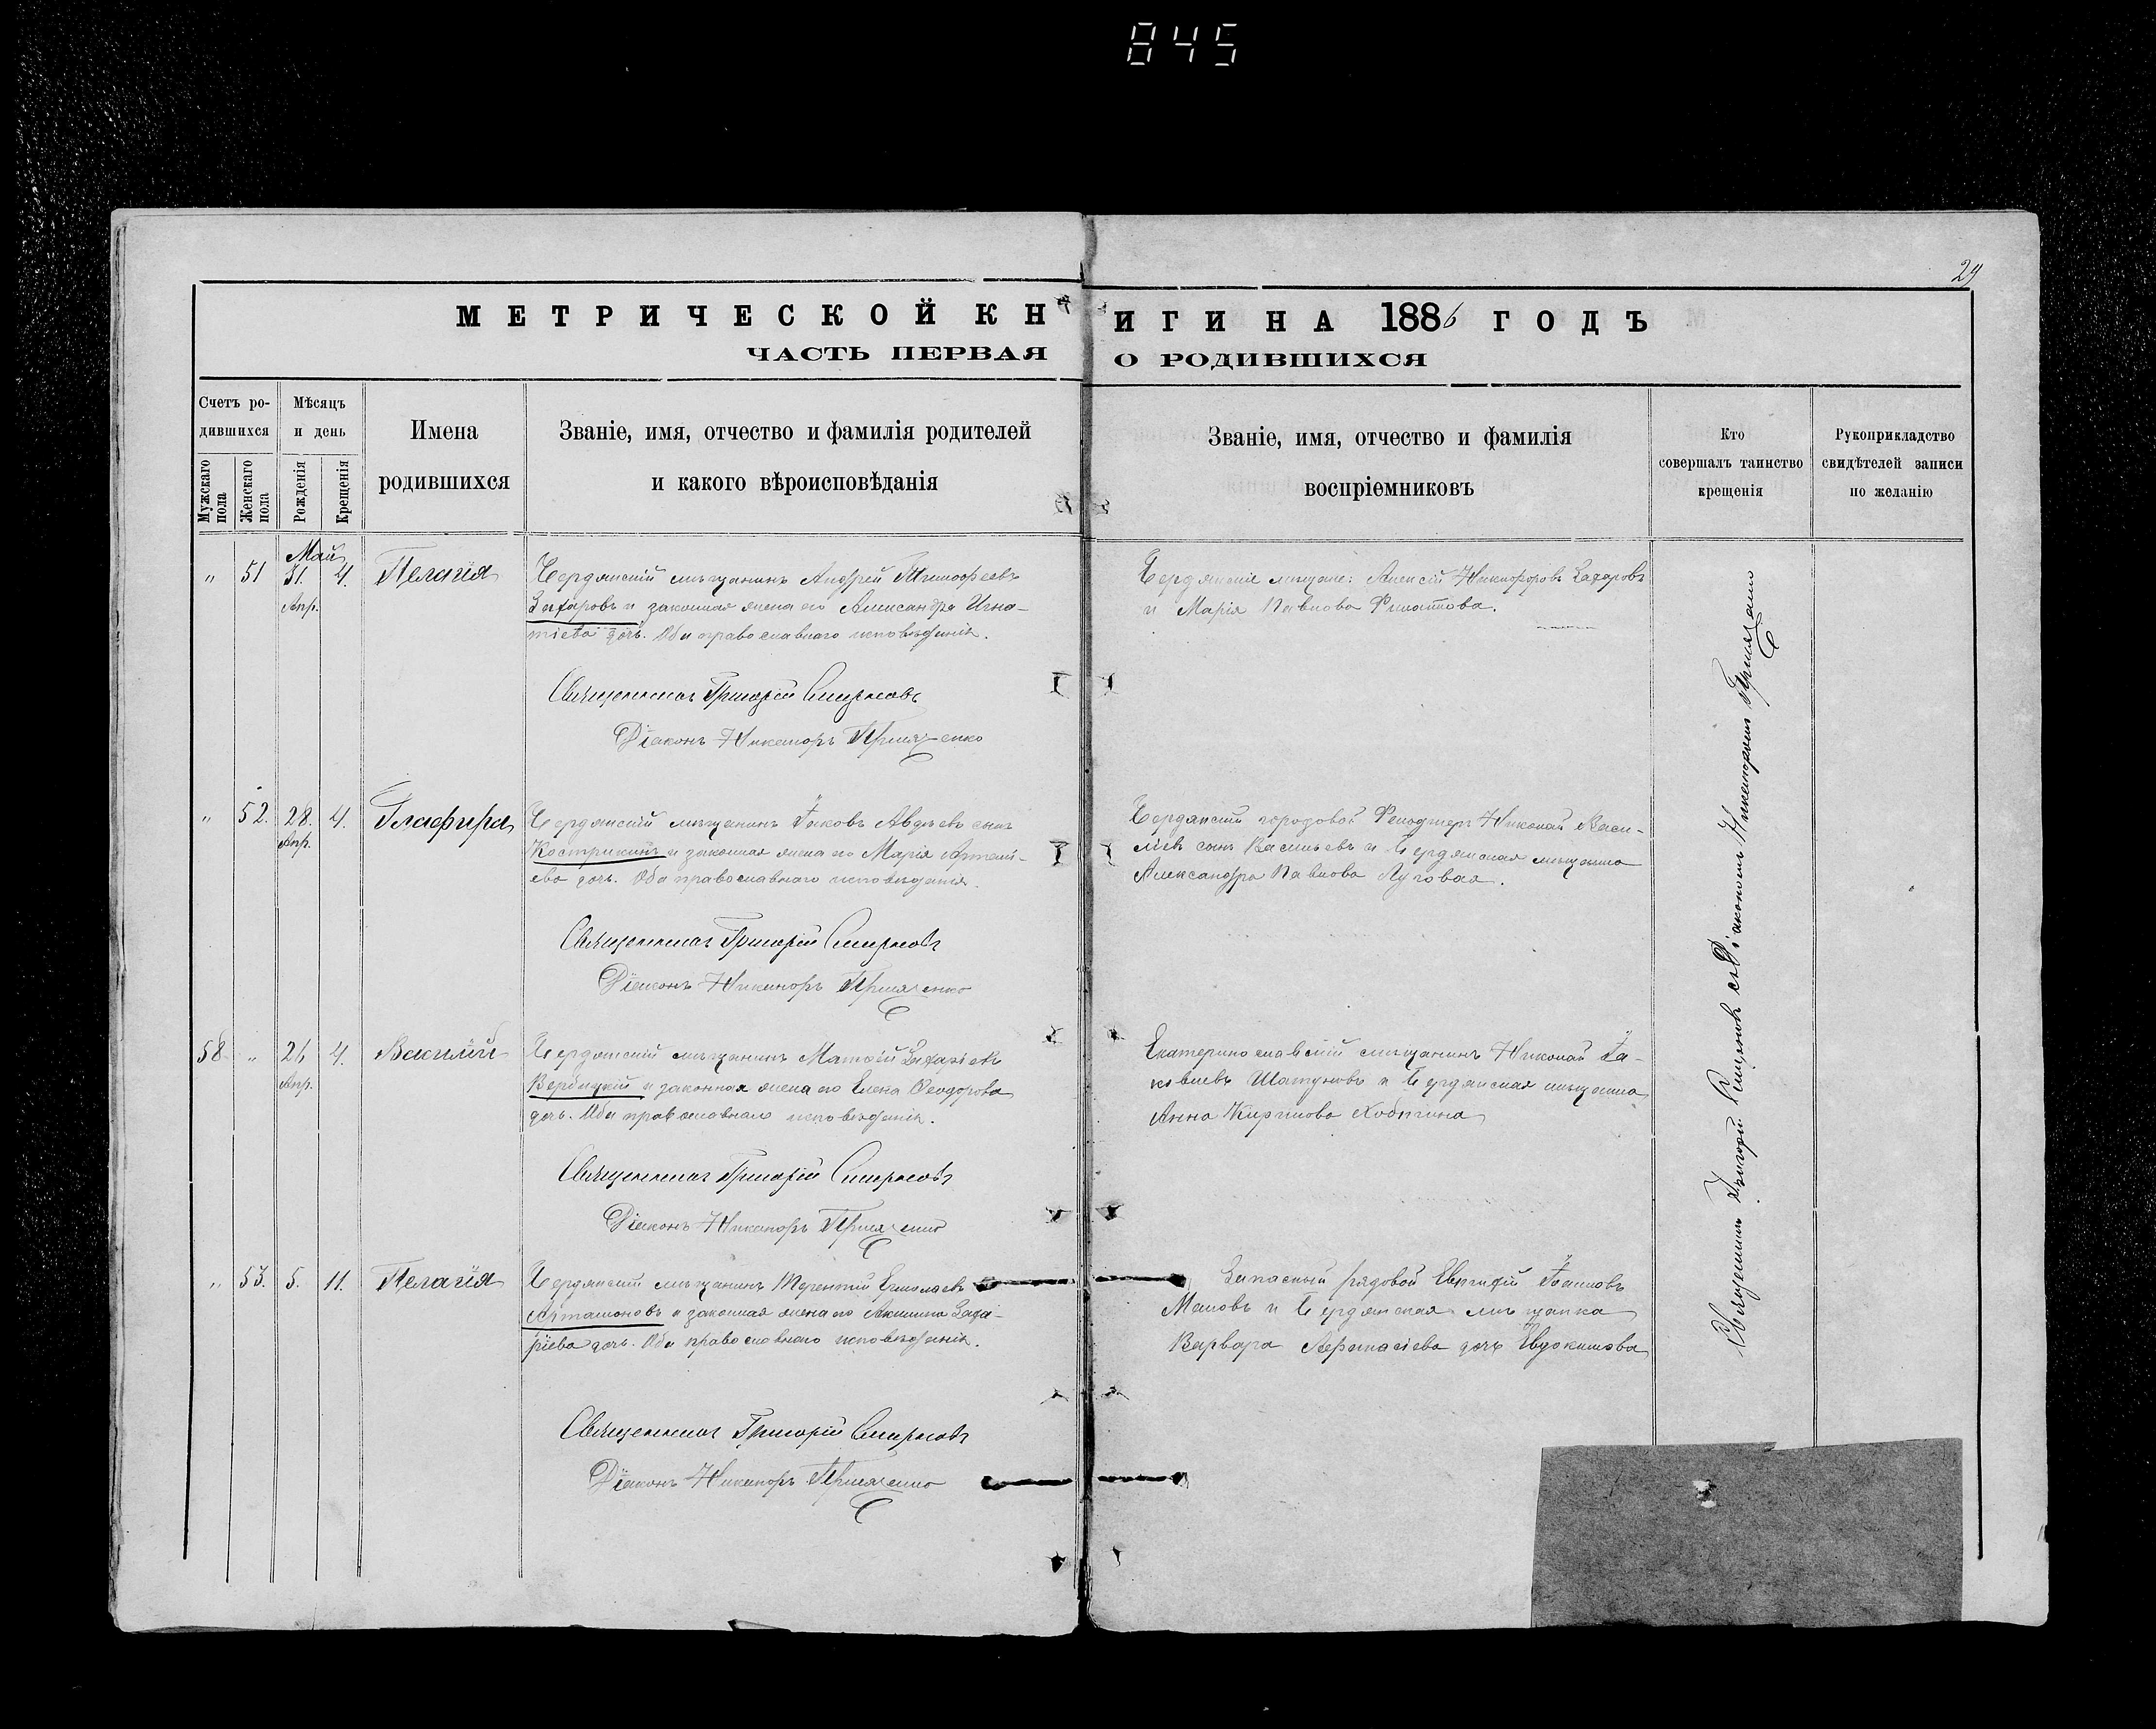 845
29
МЕТРИЧЕСКОЙ КНИГИ НА 1886 ГОДЪ
ЧАСТЬ ПЕРВАЯ О РОДИВШИХСЯ
Счетъ ро-
дившихся
Мужскаго пола
Женскаго пола
Мѣсяцъ
и день
Рожденія
Крещенія
Имена
родившихся
Званіе, имя, отчество и фамилія родителей
и какого вѣроисповѣданія
Званіе, имя, отчество и фамилія
воспріемниковъ
Кто
совершалъ таинство
крещенія
Рукоприкладство
свидѣтелей записи
по желанію
Май
„ 51 31. 4. Пелагія
Апр.
Бердянскій мѣщанинъ Андрей Тимофеевъ
Захаровъ и законная жена его Александра Игна-
тіева дочь. Оба православнаго исповѣданія.
Священникъ Григорій Смирновъ
Діаконъ Никаноръ
Бердянскіе мѣщане: Алексій Никифоровъ Захаровъ
и Марія Павлова Филатова.
„ 52. 28. 4. Глафира
Апр.
Бердянскій мѣщанинъ Іаковъ Авдѣевъ сынъ
Кострикинъ и законная жена его Марія Артемі-
ева дочь. Оба православнаго исповѣданія.
Священникъ Григорій Смирновъ
Діаконъ Никаноръ
Бердянскій городовой Николай Васи-
ліевъ сынъ Васильевъ и Бердянская мѣщанка
Александра Павлова Луговая.
58 „ 26 4. Василій
Апр.
Бердянскій мѣщанинъ Матѳій Захаріевъ
Вербицкій и законная жена его Елена Ѳеодорова
дочь. Оба православнаго исповѣданія.
Священникъ Григорій Смирновъ
Діаконъ Никаноръ
Екатеринославскій мѣщанинъ Николай Іа-
ковлевъ Шатуновъ и Бердянская мѣщанка
Анна Кирилова
„ 53. 5. 11. Пелагія
Бердянскій мѣщанинъ Терентій Ермолаевъ
Артамоновъ и законная жена его Акилина Заха-
ріева дочь. Оба православнаго исповѣданія.
Священникъ Григорій Смирновъ
Діаконъ Никаноръ
Запасный рядовой Евгифій Іоанновъ
Маловъ и Бердянская мѣщанка
Варвара Аѳанасіева дочь Евдокимова
Священникъ Григорій Смирновъ съ Діакономъ Никаноромъ